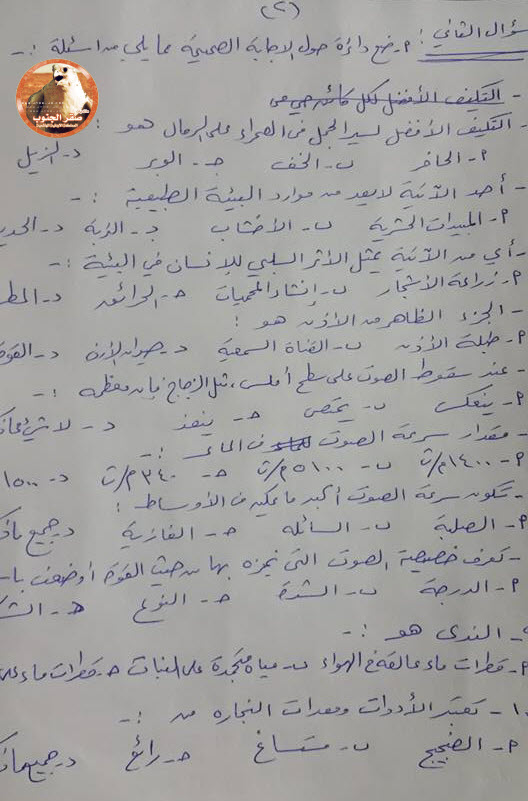 (٢)
سؤال الثاني : ٢- ضع دائرة حول الاجابة الصحيحة مما يلي من اسئلة :-
صقر الجنوب
- التكيف الأفضل لكل
- التكيف الأفضل لسير الجمل في الصحراء على الرمال هو :
٢- الحافر ب- الخف ج- الوبر د- الذيل
- أحد الآتية لا يعد من موارد البيئة الطبيعية :-
٢- المبيدات الحشرية ب- الأخشاب ج- التربة د- الحديد
- أي من الآتية يمثل الأثر السلبي للإنسان في البيئة :-
٢- زراعة الأشجار ب- إنشاء المحميات ج- الحرائق د- المطر
- الجزء الظاهر من الأذن هو :
٢- طبلة الأذن ب- القناة السمعية د- صيوان الأذن د- القوقعة
- عند سقوط الصوت على سطح أملس مثل الزجاج فإن معظمه :-
٢- ينعكس ب- يمتص ج- ينفذ د- لا شيء مما
- مقدار سرعة الصوت في الماء :-
٢- ١٤٠٠ م/ث ب- ٥١٠٠ م/ث ج- ٣٤٠ م/ث د- ١٥٠٠
- تكون سرعة الصوت أكبر ما يمكن في الأوساط :
٢- الصلبة ب- السائله ج- الغازية د- جميع ما ذكر
- تعرف خصيصة الصوت التي نميزه بها من حيث القوة أو ضعف با-
٢- الدرجة ب- الشدة ج- النوع
- الندى هو :-
٢- قطرات ماء عالقة في الهواء ب- مياه متجمدة على النبات ج- قطرات ماء على
١- تعتبر الأدوات ومعدات النجاره من :-
٢- الضجيج ب- مستساغ ج- رائع د- جميع ما ذكر